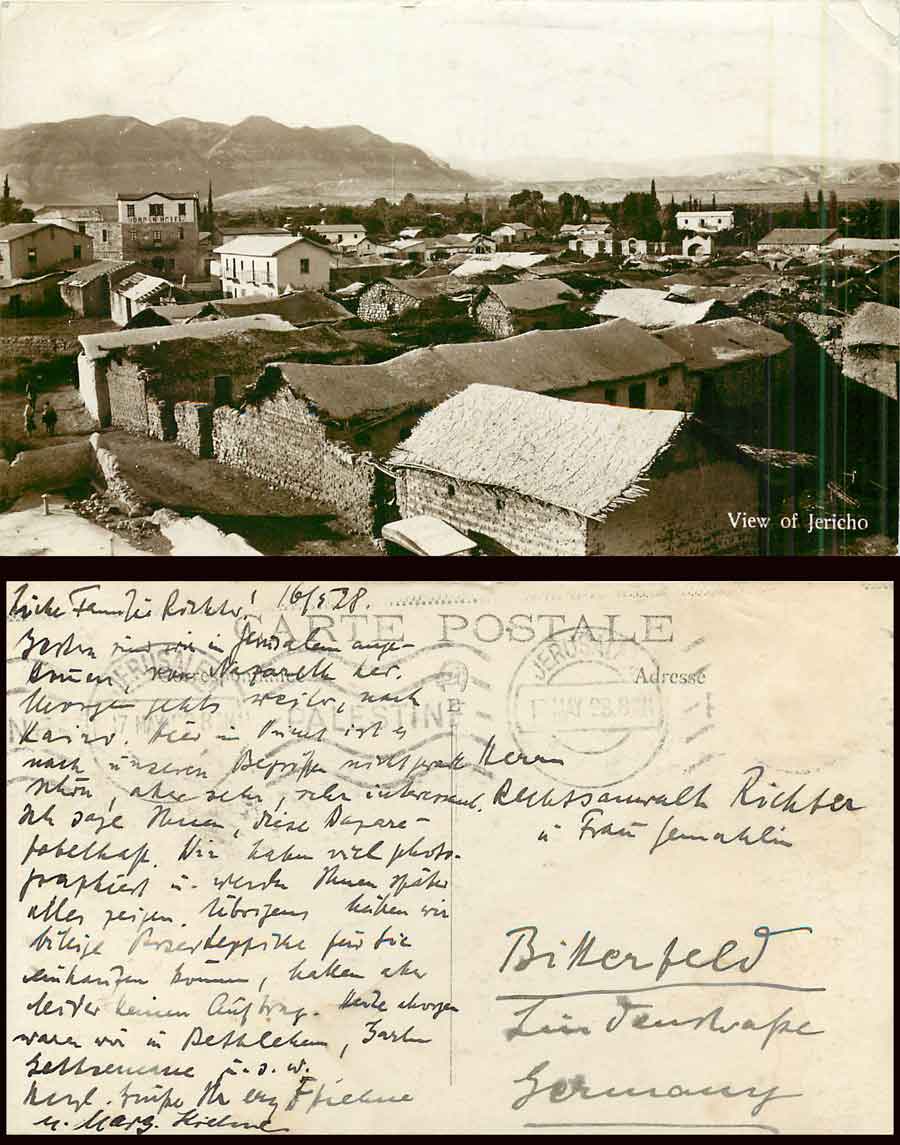 JORDAN HOTEL
View of Jericho
CARTE POSTALE
Adresse
JERUSALEM
17 MAY 28
PALESTINE
Liebe Familie Richter! 16/5 28.
Gestern sind wir in Jerusalem ange-
kommen, von Nazareth her.
Morgen gehts weiter, nach
Kairo. Hier im Orient ist es
nach unseren Begriffen nicht grade
schön, aber sehr, sehr interessant.
Ich sage Ihnen, diese Basare –
fabelhaft. Wir haben viel photo-
graphiert u. werden Ihnen später
alles zeigen. Übrigens hätten wir
billige Perserteppiche für Sie
einkaufen können, hatten aber
leider keinen Auftrag. Heute morgen
waren wir in Bethlehem, Garten
Gethsemane u.s.w.
Herzl. Grüße Ihr
u. Marg.
Herrn
Rechtsanwalt Richter
u Frau Gemahlin
Bitterfeld
Lindenstraße
Germany